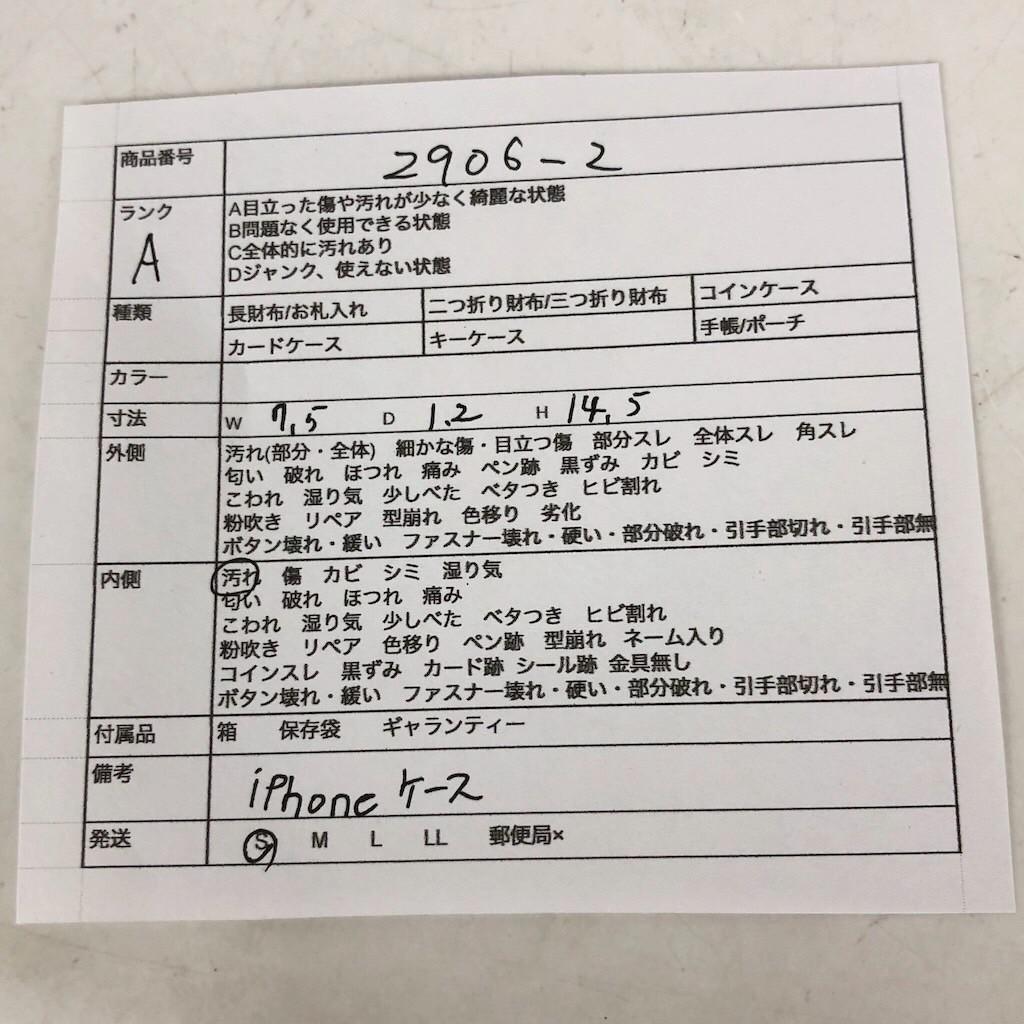 商品番号 2906-2
ランク A
A目立った傷や汚れが少なく綺麗な状態
B問題なく使用できる状態
C全体的に汚れあり
Dジャンク、使えない状態
種類 長財布/お札入れ 二つ折り財布/三つ折り財布 コインケース
カードケース キーケース 手帳/ポーチ
カラー
寸法 W 7.5 D 1.2 H 14.5
外側 汚れ(部分・全体) 細かな傷・目立つ傷 部分スレ 全体スレ 角スレ
匂い 破れ ほつれ 痛み ペン跡 黒ずみ カビ シミ
こわれ 湿り気 少しべた ベタつき ヒビ割れ
粉吹き リペア 型崩れ 色移り 劣化
ボタン壊れ・緩い ファスナー壊れ・硬い・部分破れ・引手部切れ・引手部無
内側 汚れ 傷 カビ シミ 湿り気
匂い 破れ ほつれ 痛み
こわれ 湿り気 少しべた ベタつき ヒビ割れ
粉吹き リペア 色移り ペン跡 型崩れ ネーム入り
コインスレ 黒ずみ カード跡 シール跡 金具無し
ボタン壊れ・緩い ファスナー壊れ・硬い・部分破れ・引手部切れ・引手部無
付属品 箱 保存袋 ギャランティー
備考 iPhone ケース
発送 S M L LL 郵便局×